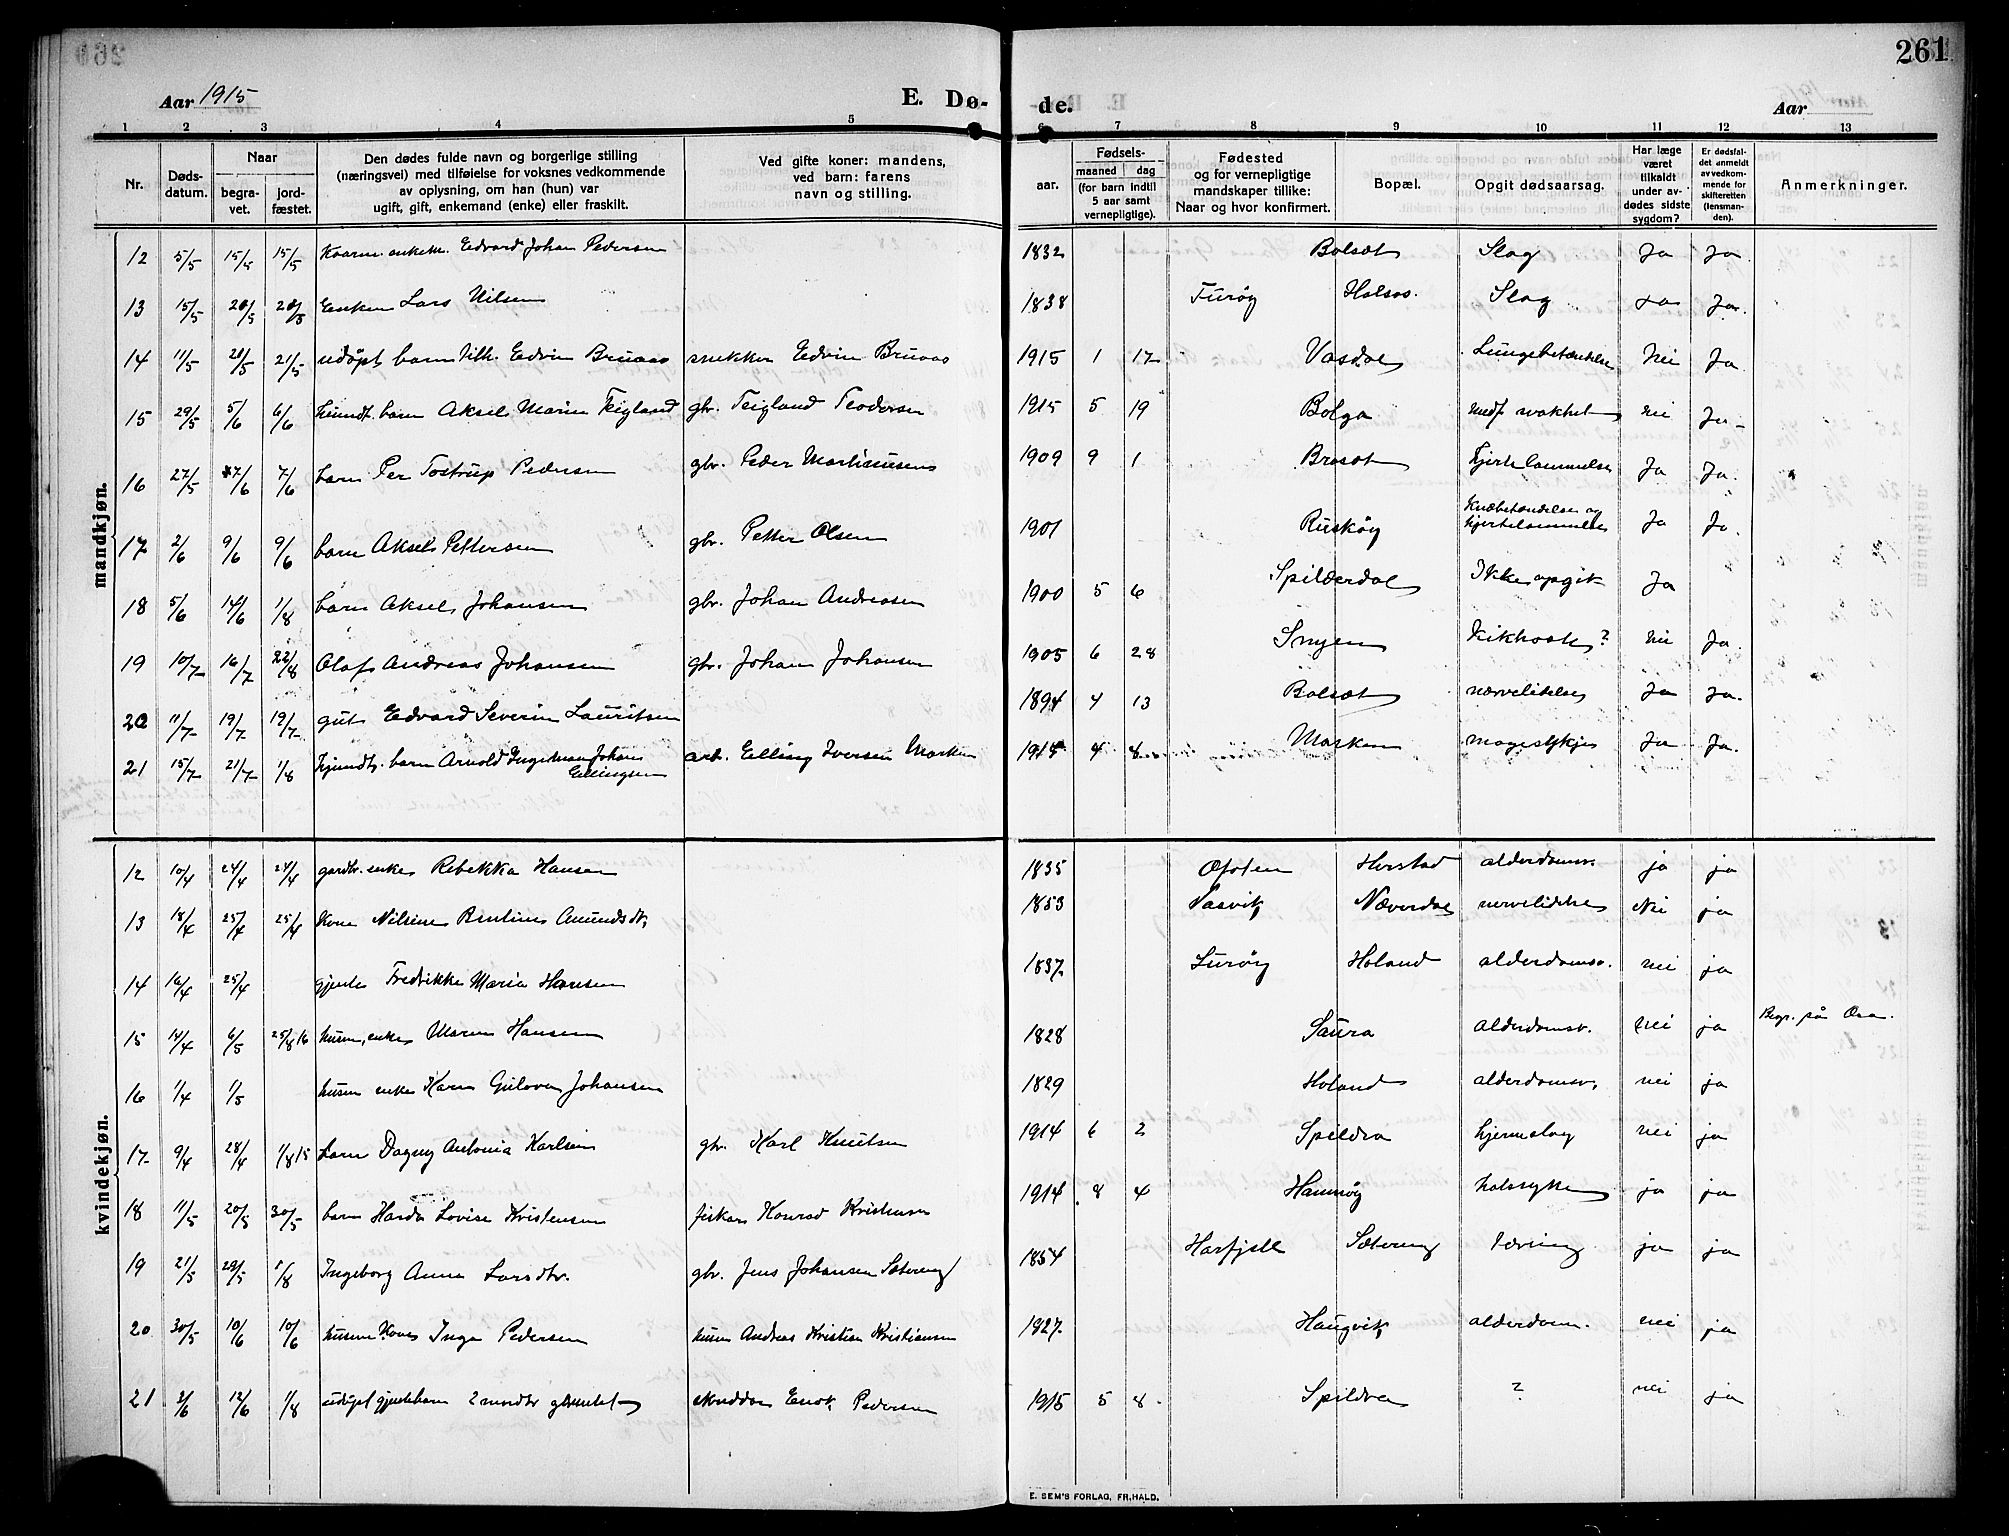 261
Aar 1915 E. Dø- de. Aar
1 2 3 4 5 6 7 8 9 10 11 12 13
Nr. Døds-datum. Naar begra-vet. jord-fæstet. Den dødes fulde navn og borgerlige stilling (næringsvei) med tilføielse for voksnes vedkommende av oplysning, om han (hun) var ugift, gift, enkemand (enke) eller fraskilt. Ved gifte koner: mandens, ved barn: farens navn og stilling. aar. Fødsels- maaned dag (for barn indtil 5 aar samt vernepligtige). Fødested og for vernepligtige mandskaper tillike: Naar og hvor konfirmert. Bopæl. Opgit dødsaarsag. Har læge været tilkaldt under av-dødes sidste sygdom? Er dødsfal-det anmeldt av vedkom-mende for skifteretten (lensman-den). Anmerkninger.
mandkjøn.
12 5/5 15/5 15/5 Kaarm. enkem. Edvard Johan Pedersen 1832 Bolsæt Slag Ja Ja
13 15/5 20/5 20/5 Enkem Lars Nilsen 1838 Turøy Halsos. Slag Ja Ja.
14 11/5 20/5 21/5 udøpt barn tilh. Edvin Bruaas snekker Edvin Bruaas 1915 1 17 Vasdal Lungebetændelse Nei Ja
15 29/5 5/6 6/6 barn Aksel Marius Teigland gbr. Teigland Teodorsen 1915 5 19 Bolga medf. svakhet nei Ja
16 27/5 7/6 7/6 barn Per Tostrup Pedersen gbr. Peder Martinusens 1909 9 1 Brasæt hjertelammelse Ja Ja.
17 2/6 9/6 9/6 barn Aksel Pettersen gbr. Petter Olsen 1901 Ruskøy Knæbetændelse og hjertelammelse Ja Ja.
18 5/6 14/6 1/8 barn Aksel Johansen gbr. Johan Andreasen 1900 5 6 Spilderdal Ikke opgit Ja
19 10/7 16/7 22/8 Olaf Andreas Johansen gbr. Johan Johansen 1905 6 28 Kikhoste? nei Ja.
20 11/7 19/7 19/7 gut Edvard Severin Lauritsen 1894 4 13 Bolsæt nervelidelse Ja Ja.
21 15/7 21/7 1/8 hjemdt. barn Arnold Ingeman Johan Ellingsen arb. Elling Iversen Marken 1914 4 8 Marken magesykje Ja Ja.
kvindekjøn.
12 10/4 24/4 24/4 gardbr. enke Rebekka Hansen 1835 Ofoten Herstad alderdomsv. ja ja
13 18/4 25/4 25/4 Kone Nilsine Bentine Amundsdt. 1853 Saavik Næverdal nervelidelse Nei ja
14 16/4 25/4 gjente Fredrikke Maria Hansen 1837 Lurøy Holand alderdomsv. nei ja
15 14/4 6/5 25/8 16 husm. enke Maren Hansen 1828 Saura alderdomsv. nei ja Begr. på Øra.
16 1/4 1/5 husm enke Karen Gulova Johansen 1829 Holand alderdomsv. nei ja
17 9/4 28/4 1/8 15 barn Dagny Antonia Karlsen gbr. Karl Knutsen 1914 6 2 Spildra hjerneslag nei ja
18 11/5 20/5 30/5 barn Harda Lovise Kristensen fisker Konrad Kristensen 1914 8 4 Hamnøy halssyke ja ja
19 21/5 29/5 1/8 Ingeborg Anna Larsdtr. gbr. Jens Johansen Sætereng 1854 Harfjell Sætereng Tæring ja ja
20 30/5 10/6 10/6 husm Kone Inga Pedersen husm Andreas Kristian Kristiansen 1827 Haugvik alderdom. nei ja
21 3/6 12/6 1/8 udøpt gjentebarn 2 mndr. skredder Enok Pedersen 1915 5 8 Spildra ? nei ja
E. SEM'S FORLAG, FR.HALD.